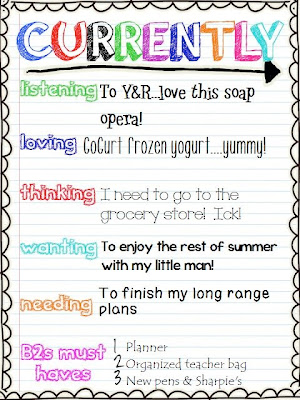 CURRENTLY
listening To Y&R...love this soap
opera!
loving CoCurt frozen yogurt....yummy!
thinking I need to go to the
grocery store! Ick!
wanting To enjoy the rest of summer
with my little man!
needing To finish my long range
plans
B2s must haves
1 Planner
2 Organized teacher bag
3 New pens & Sharpie's